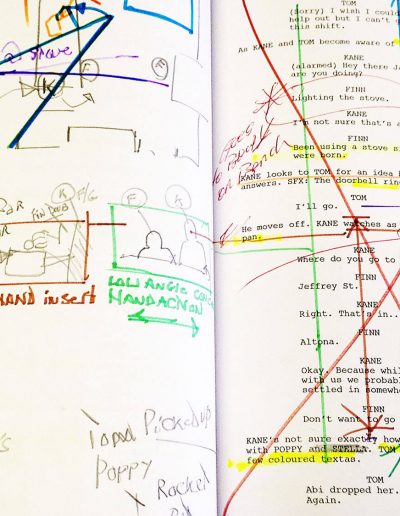 stove
F
F
K
F
K
F/G
HAND insert
LOW ANGLE
HANDACTION
Picked up
Poppy
Rocket
TOM
(sorry) I wish I could
help out but I can't g
this shift.
As KANE and TOM become aware of
KANE
(alarmed) Hey there Ja
are you doing?
FINN
Lighting the stove.
KANE
I'm not sure that's a
FINN
Been using a stove si
were born.
KANE looks to TOM for an idea h
answers. SFX: The doorbell ring
TOM
I'll go.
He moves off. KANE watches as
pan.
KANE
Where do you go to
FINN
Jeffrey St.
KANE
Right. That's in..
FINN
Altona.
KANE
Okay. Because whil
with us we probabl
settled in somewhe
FINN
Don't want to go
KANE's not sure exactly how
with POPPY and STELLA. TOM
few coloured textas.
TOM
Abi dropped her.
Again.